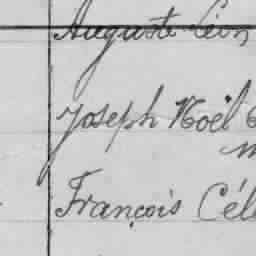 Auguste Léon
Joseph Noël
François